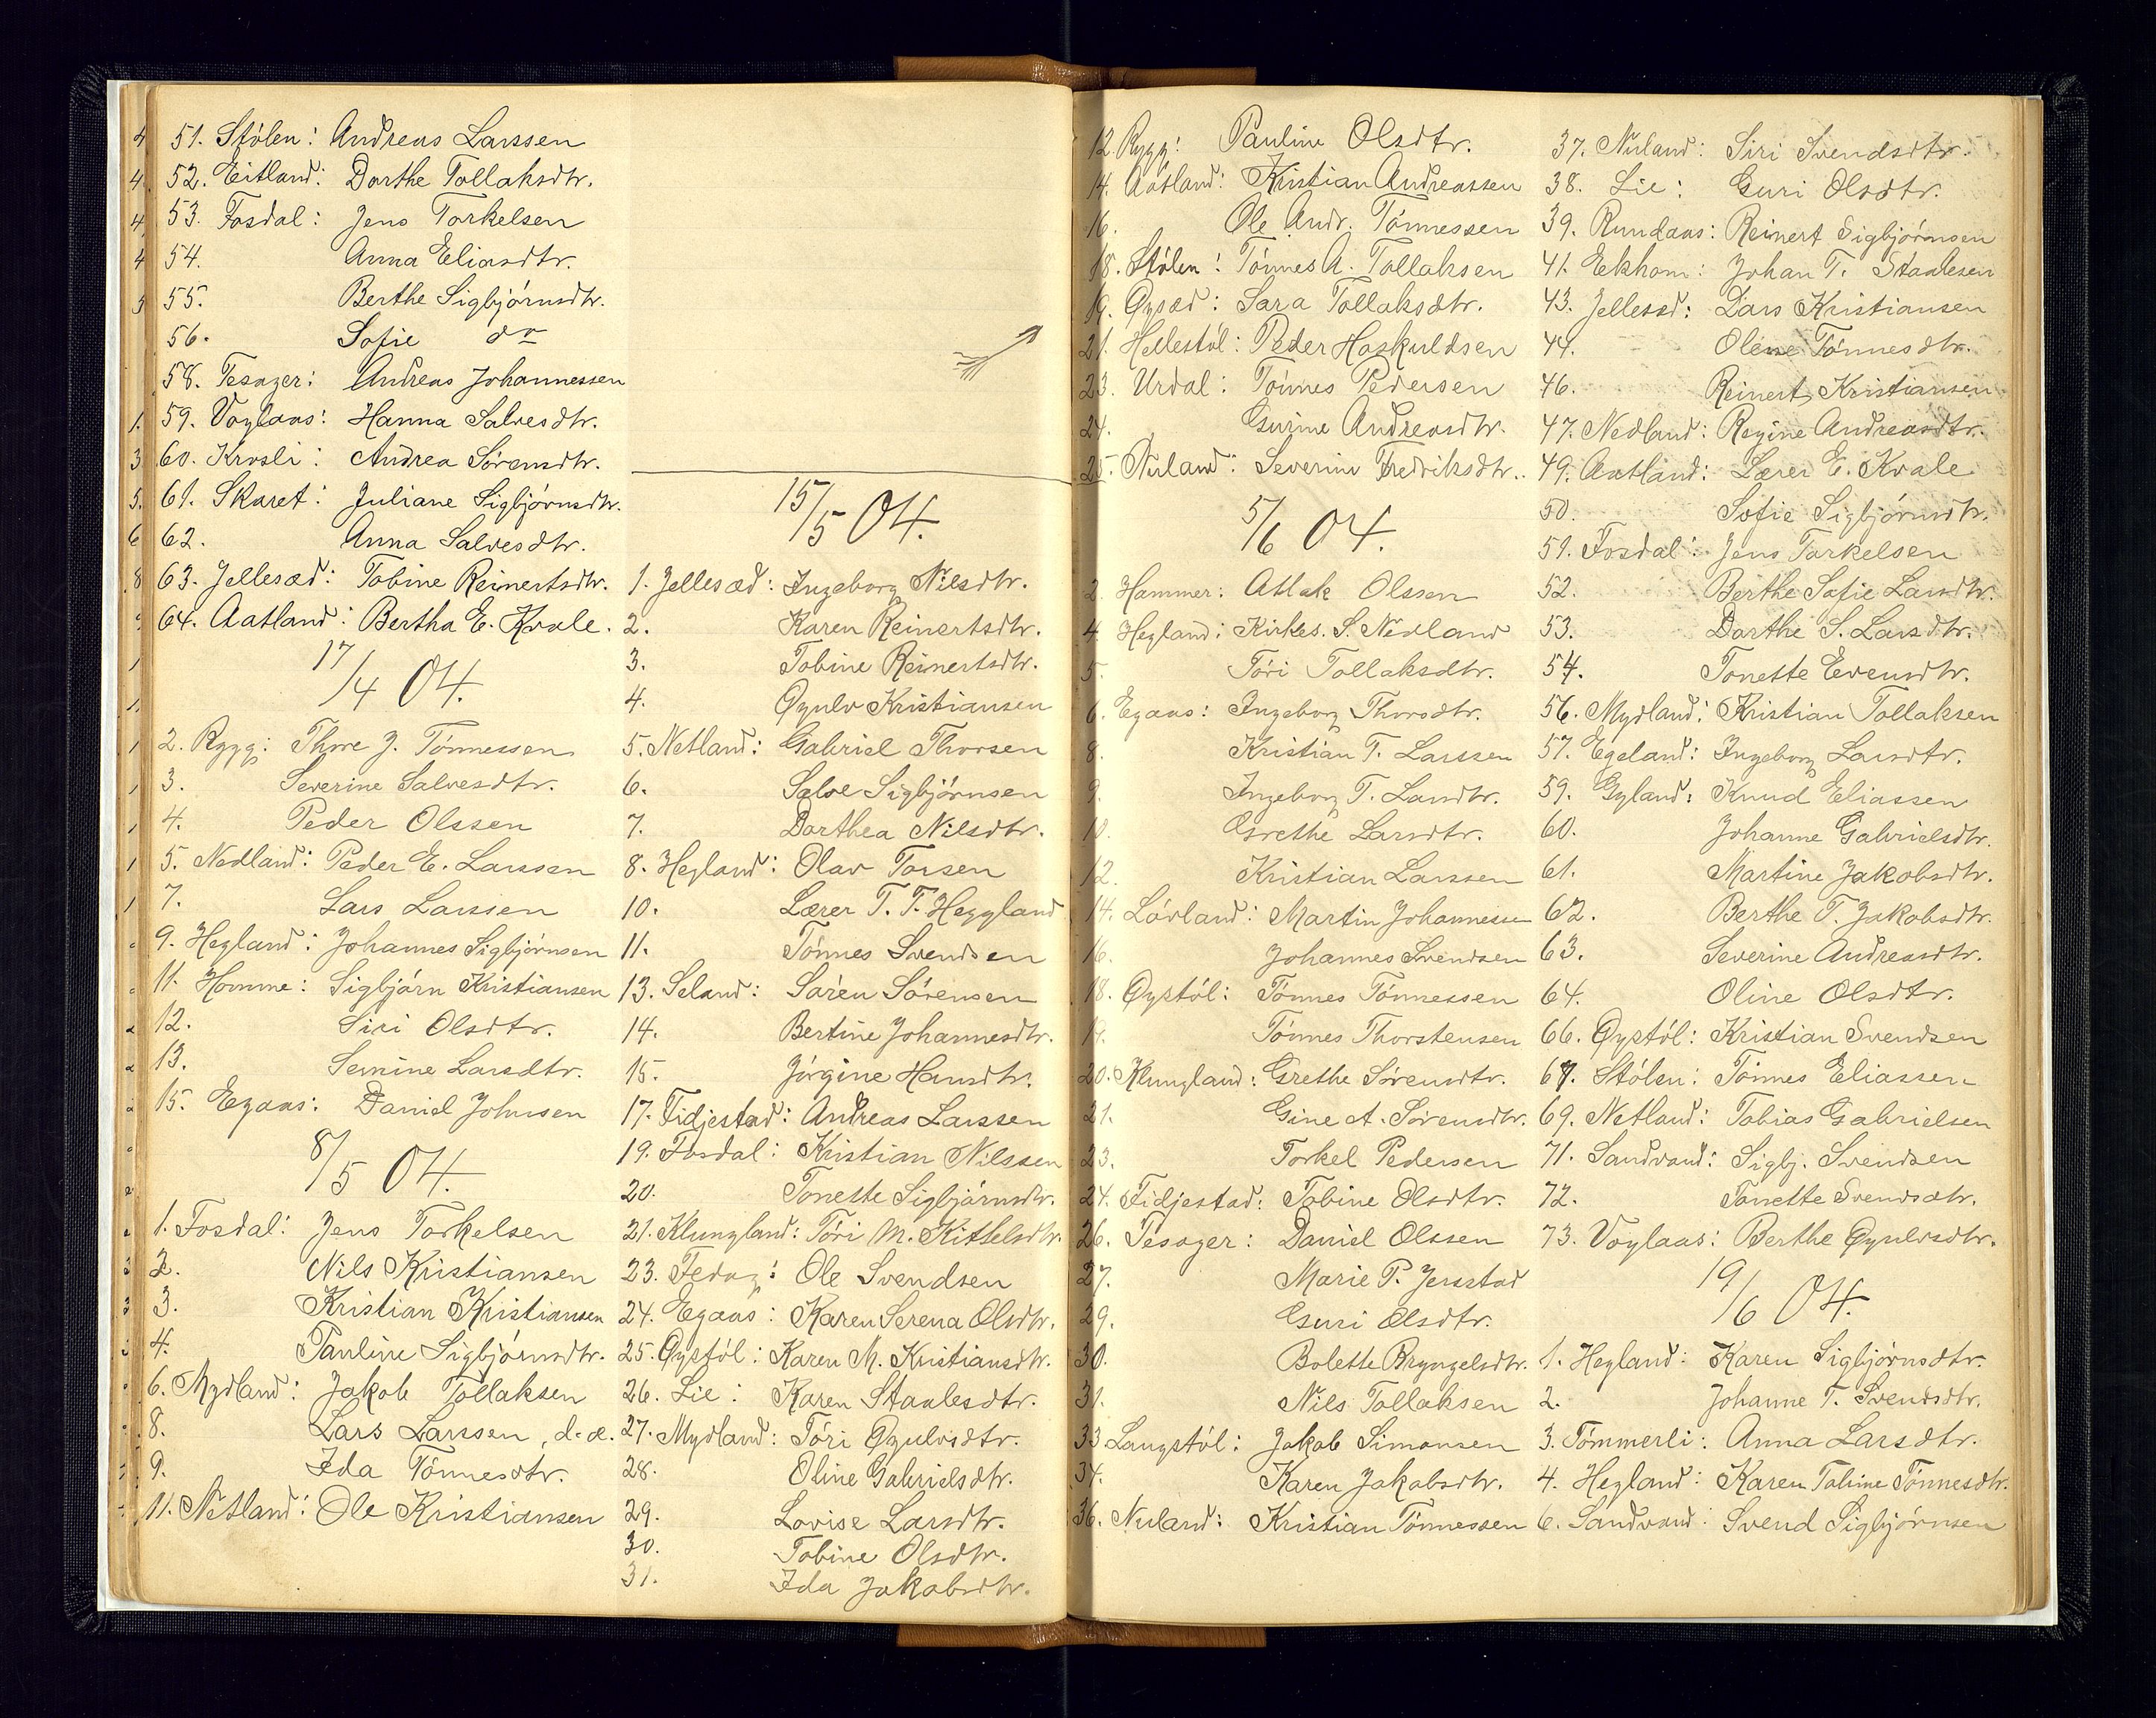 51. Stölen: Andreas Larssen
52. Eitland: Dorthe Tollaksdtr.
53. Fosdal: Jens Torkelsen
54. Anna Eliasdtr.
55. Berthe Sigbjörnsdtr.
56. Sofie do
58. Tesager: Andreas Johannessen
59. Voglaas: Hanna Salvesdtr.
60. Krosli: Andrea Sörensdtr.
61. Skaret: Juliane Sigbjörnsdtr.
62. Anna Salvesdtr.
63. Jellesæd: Tobine Reinertsdtr.
64. Aatland: Bertha E. Kvale.
17/4 04.
2. Rygg: Thore J. Tönnessen
3. Severine Salvesdtr.
4. Peder Olssen
5. Nedland: Peder E. Larssen
7. Lars Larssen
9. Hegland: Johannes Sigbjörnsen
11. Homme: Sigbjörn Kristiansen
12. Siri Olsdtr.
13. Semine Larsdtr.
15. Egaas: Daniel Johnsen
8/5 04.
1. Fosdal: Jens Torkelsen
2. Nils Kristiansen
3. Kristian Kristiansen
4. Pauline Sigbjörnsdtr.
6. Mydland: Jakob Tollaksen
8. Lars Larssen, d.æ.
9. Ida Tönnesdtr.
11. Netland: Ole Kristiansen
15/5 04.
1. Jellesæd: Ingeborg Nilsdtr.
2. Karen Reinertsdtr.
3. Tobine Reinertsdtr.
4. Øyulv Kristiansen
5. Netland: Gabriel Thorsen
6. Salve Sigbjörnsen
7. Dorthea Nilsdtr.
8. Hegland: Olav Torsen
10. Lærer T. T. Heggland
11. Tönnes Svendsen
13. Seland: Sören Sörensen
14. Bertine Johannesdtr.
15. Jörgine Hansdtr.
17. Fidjestad: Andreas Larssen
19. Fosdal: Kristian Nilssen
20. Tonette Sigbjörnsdtr.
21. Klungland: Töri M. Kittelsdtr.
23. Fedog: Ole Svendsen
24. Egaas: Karen Serena Olsdtr.
25. Øystöl: Karen M. Kristiansdtr.
26. Lie: Karen Staalesdtr.
27. Mydland: Töri Øyulvsdtr.
28. Oline Gabrielsdtr.
29. Lovise Larsdtr.
30. Tobine Olsdtr.
31. Ida Jakobsdtr.
12. Rygg: Pauline Olsdtr.
14. Aatland: Kristian Andreassen
16. Ole Andr. Tönnessen
18. Stölen: Tönnes A. Tollaksen
19. Øysæd: Sara Tollaksdtr.
21. Hellestöl: Peder Haskuldsen
23. Urdal: Tönnes Pedersen
24. Gurine Andreasdtr.
25. Nuland: Severine Fredriksdtr.
5/6 04.
2. Hammer: Atlak Olssen
4. Hegland: Kirkes. S. Nedland
5. Töri Tollaksdtr.
6. Egaas: Ingeborg Thorsdtr.
8. Kristian T. Larssen
9. Ingeborg T. Larsdtr.
10. Grethe Larsdtr.
12. Kristian Larssen
14. Lövland: Martin Johannessen
16. Johannes Svendsen
18. Øystöl: Tönnes Tönnessen
19. Tönnes Thorstensen
20. Klungland: Grethe Sörensdtr.
21. Gine A. Sörensdtr.
23. Torkel Pedersen
24. Fidjestad: Tobine Olsdtr.
26. Tesager: Daniel Olssen
27. Marie P. Jerstad
29. Guri Olsdtr.
30. Bolette Bryngelsdtr.
31. Nils Tollaksen
33. Langstöl: Jakob Simonsen
34. Karen Jakobsdtr.
36. Nuland: Kristian Tönnessen
37. Nuland: Siri Svendsdtr.
38. Lie: Guri Olsdtr.
39. Rundaas: Reinert Sigbjörnsen
41. Eekhom: Johan T. Staalesen
43. Jellesæd: Lars Kristiansen
44. Olene Tönnesdtr.
46. Reinert Kristiansen
47. Nedland: Regine Andreasdtr.
49. Aatland: Lærer E. Kvale
50. Sofie Sigbjörnsdtr.
51. Fosdal: Jens Torkelsen
52. Berthe Sofie Larsdtr.
53. Dorthe S. Larsdtr.
54. Tonette Evensdtr.
56. Mydland: Kristian Tollaksen
57. Egeland: Ingeborg Larsdtr.
59. Gyland: Knud Eliassen
60. Johanne Gabrielsdtr.
61. Martine Jakobsdtr.
62. Berthe T. Jakobsdtr.
63. Severine Andreasdtr.
64. Oline Olsdtr.
66. Øystöl: Kristian Svendsen
67. Stölen: Tönnes Eliassen
69. Netland: Tobias Gabrielsen
71. Sandvand: Sigbj. Svendsen
72. Tonette Svendsdtr.
73. Voglaas: Berthe Øyulvsdtr.
19/6 04.
1. Hegland: Karen Sigbjörnsdtr.
2. Johanne T. Svendsdtr.
3. Tömmerli: Anna Larsdtr.
4. Hegland: Karen Tobine Tönnesdtr.
6. Sandvand: Svend Sigbjörnsen